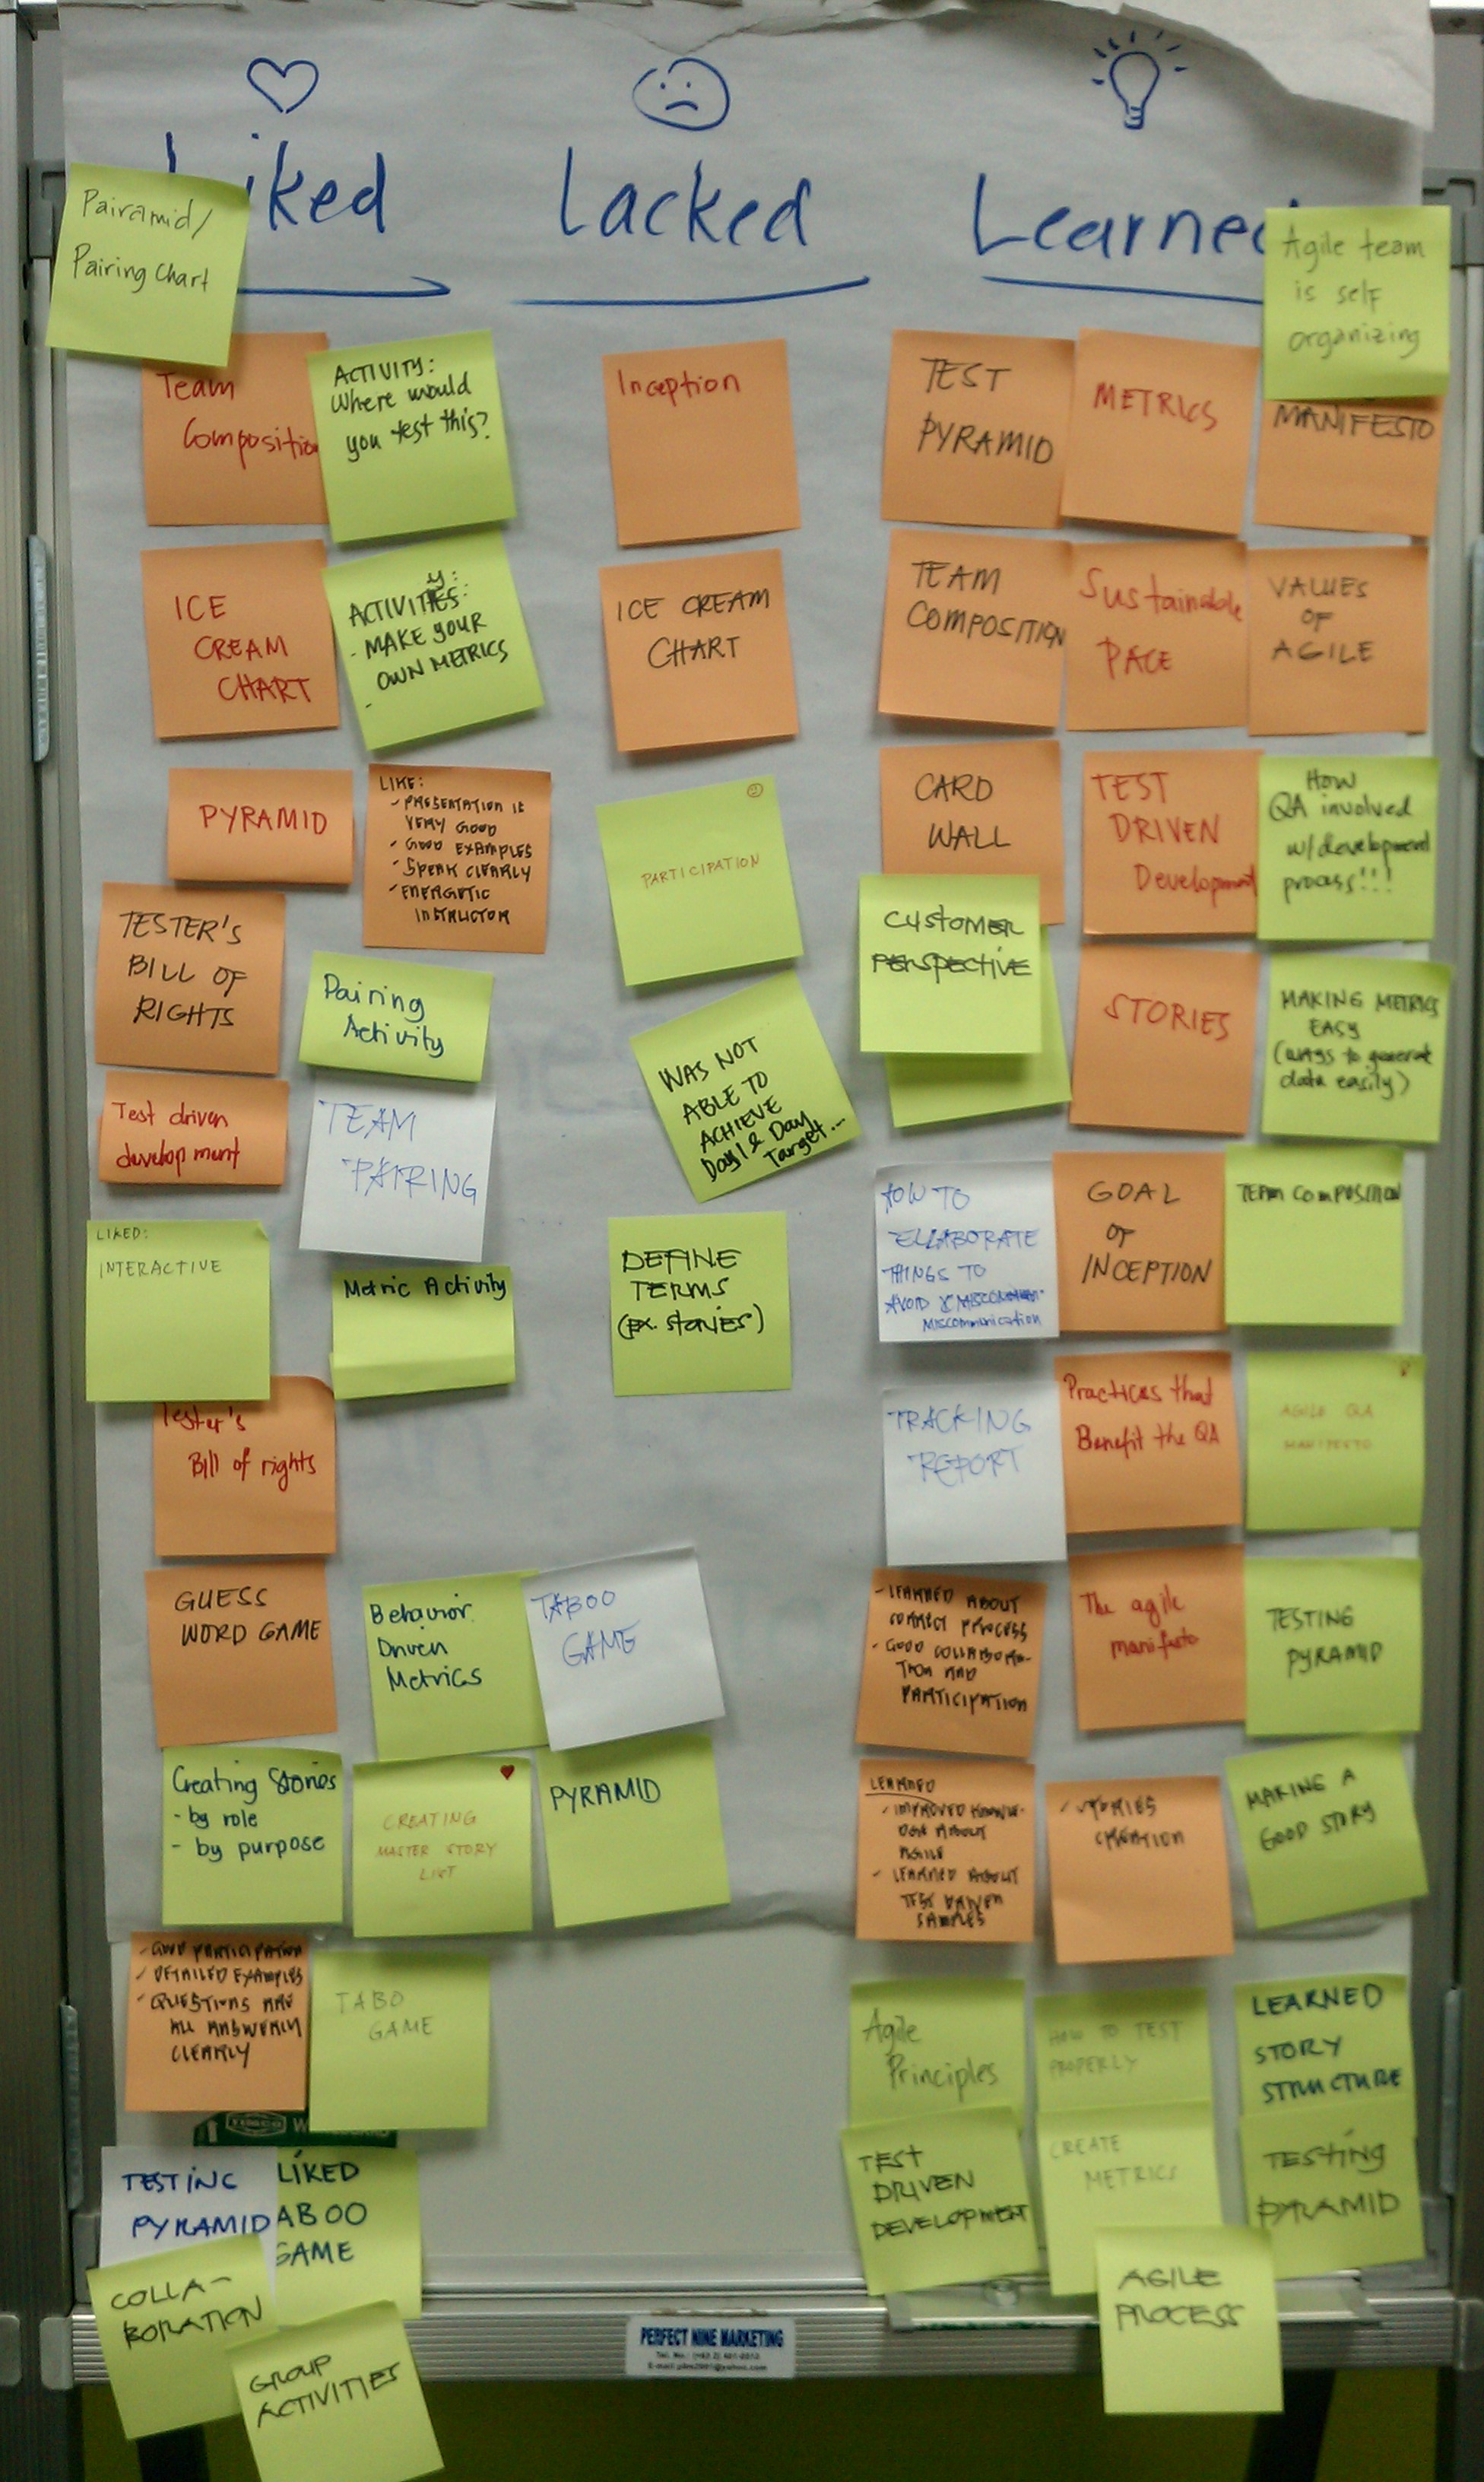 Liked
Lacked
Learned
Pairamid/
Pairing Chart
Team
Composition
ACTIVITY:
Where would
you test this?
ICE
CREAM
CHART
ACTIVITY:
- MAKE YOUR
OWN METRICS
-
PYRAMID
LIKE:
- PRESENTATION IS
VERY GOOD
- GOOD EXAMPLES
- SPEAK CLEARLY
- ENERGETIC
INSTRUCTOR
TESTER'S
BILL OF
RIGHTS
Pairing
Activity
Test driven
development
TEAM
PAIRING
LIKED:
INTERACTIVE
Metric Activity
Tester's
Bill of rights
GUESS
WORD GAME
Behavior
Driven
Metrics
TABOO
GAME
Creating Stories
- by role
- by purpose
CREATING
MASTER STORY
LIST
PYRAMID
- GOOD PARTICIPATION
- DETAILED EXAMPLES
- QUESTIONS
ALL
CLEARLY
TABO
GAME
TESTING
PYRAMID
LIKED
ABOO
GAME
COLLA-
BORATION
GROUP
ACTIVITIES
Inception
ICE CREAM
CHART
PARTICIPATION
WAS NOT
ABLE TO
ACHIEVE
Day 1 & Day
Target...
DEFINE
TERMS
(EX. STORIES)
TEST
PYRAMID
METRICS
Agile team
is self
organizing
MANIFESTO
TEAM
COMPOSITION
Sustainable
PACE
VALUES
OF
AGILE
CARD
WALL
TEST
DRIVEN
Development
HOW
QA involved
w/development
process!!!
CUSTOMER
PERSPECTIVE
STORIES
MAKING METRICS
EASY
(WAYS to generat
data easily)
HOW TO
ELLABORATE
THINGS TO
AVOID
MISCOMMUNICATION
GOAL
OF
INCEPTION
TEAM COMPOSITION
TRACKING
REPORT
Practices that
Benefit the QA
AGILE QA
MANIFESTO
- LEARNED ABOUT
CORRECT PROCESS
- GOOD COLLABORA-
TION AND
PARTICIPATION
The agile
manifesto
TESTING
PYRAMID
LEARNED
- IMPROVED KNOWLE-
DGE ABOUT
AGILE
- LEARNED ABOUT
TEST DRIVEN
SAMPLES
STORIES
CREATION
MAKING A
GOOD STORY
Agile
Principles
HOW TO TEST
PROPERLY
LEARNED
STORY
STRUCTURE
TEST
DRIVEN
DEVELOPMENT
CREATE
METRICS
TESTING
PYRAMID
AGILE
PROCESS
PERFECT NINE MARKETING